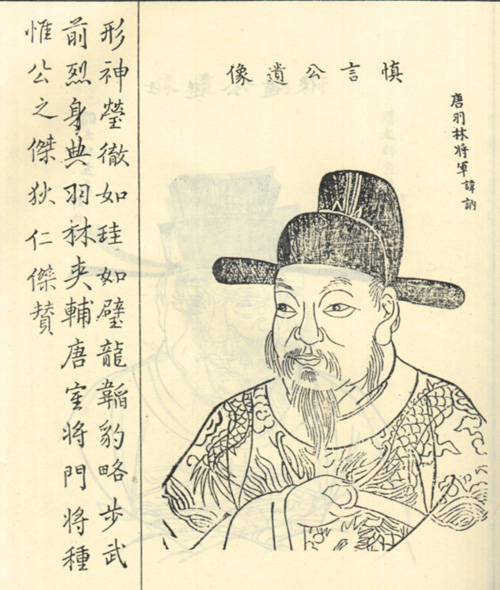 慎言公遺像
唐羽林將軍諱訥
形神瑩徹如珪如璧龍韜豹略步武
前烈身典羽林夾輔唐室將門將種
惟公之傑狄仁傑贊